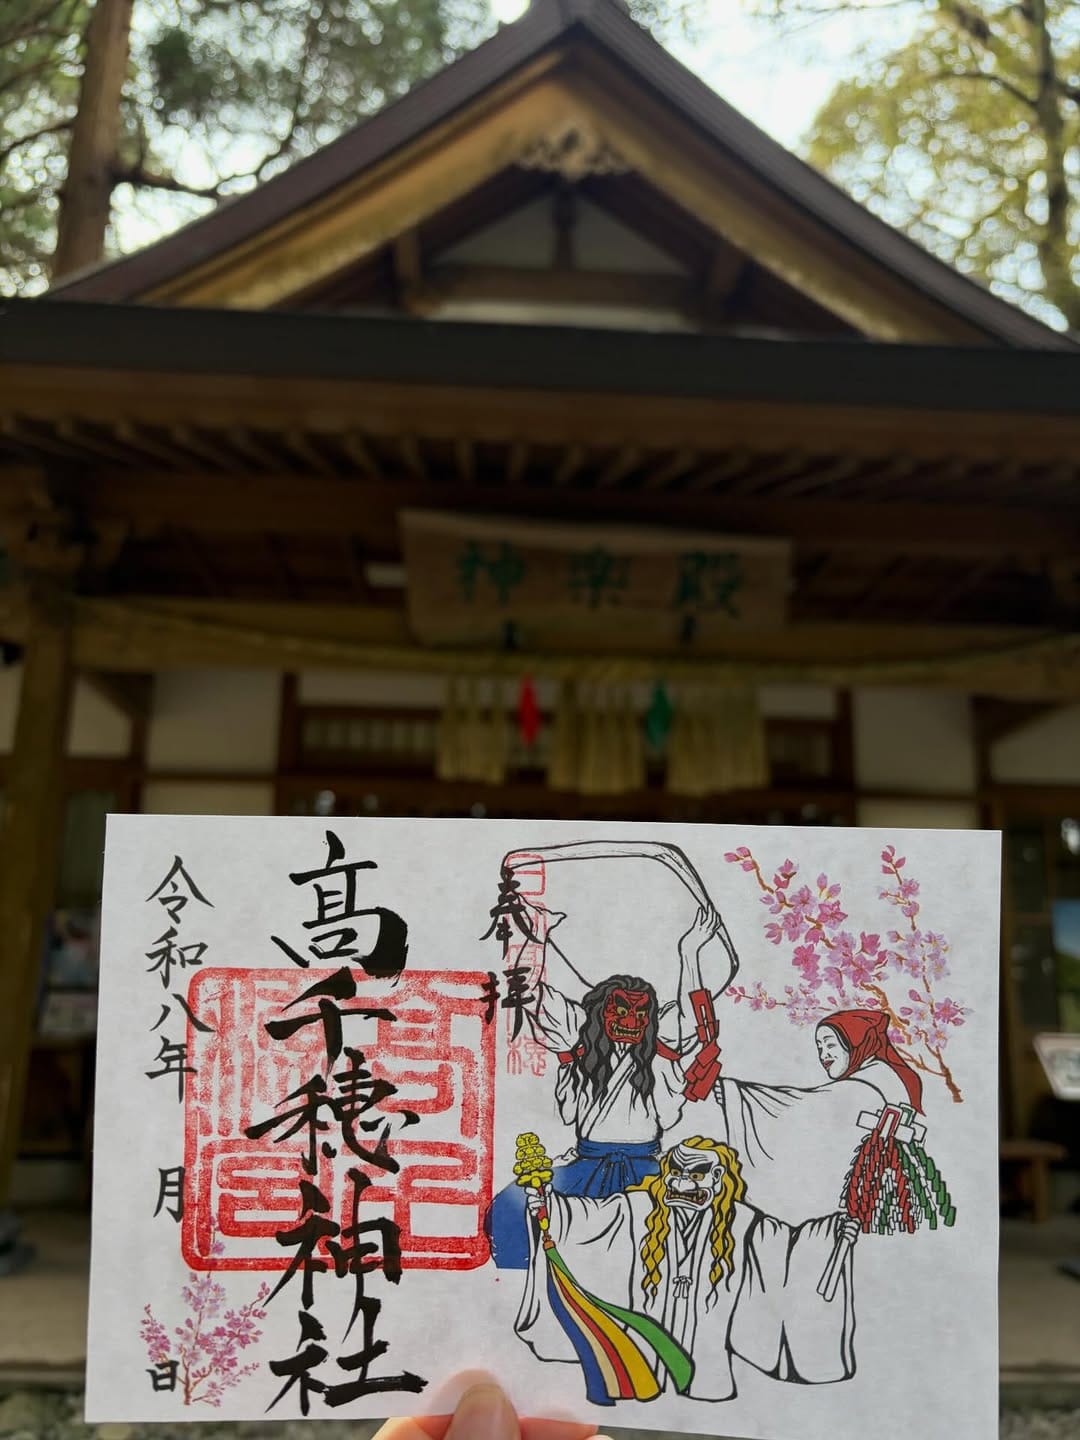 神楽殿
奉拝
高千穂神社
令和八年 月 日